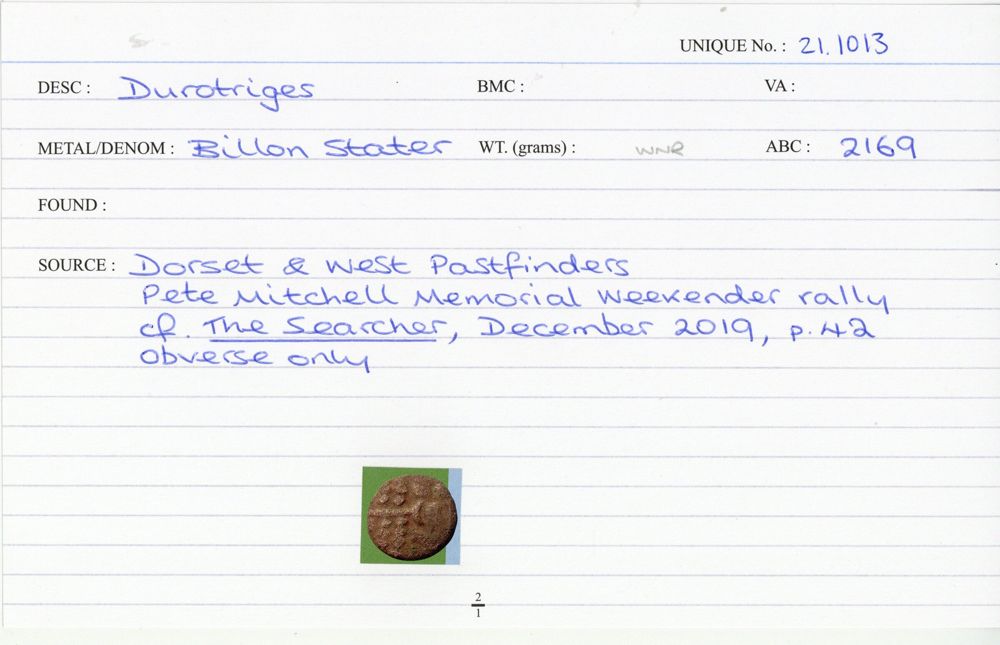 UNIQUE No. : 21.1013
DESC : Durotriges BMC : VA :
METAL/DENOM : Billon Stater WT. (grams) : WNR ABC : 2169
FOUND :
SOURCE : Dorset & West Pastfinders
Pete Mitchell Memorial Weekender rally
cf. The Searcher, December 2019, p.42
obverse only
2
1